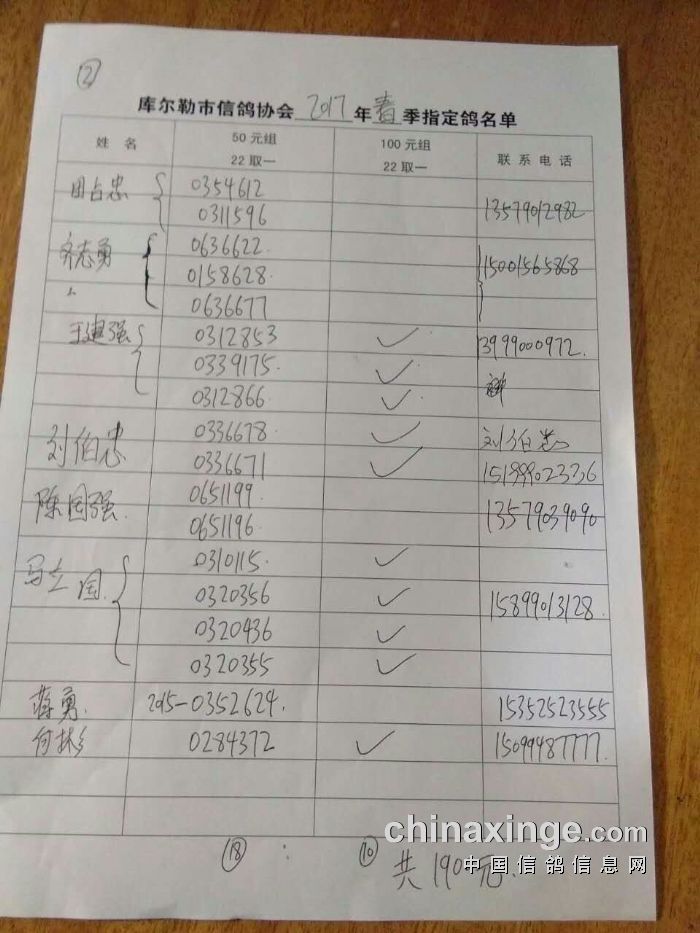 ②
库尔勒市信鸽协会 2017 年 春 季指定鸽名单
姓 名 50元组 22取一 100元组 22取一 联系电话
田占忠 0354612
0311596 13579012982
齐志勇 0636622
0158628 15001565868
0636677
王建强 0312853 ✓ 13999000972
0339175 ✓
0312866 ✓
刘伯忠 0336678 ✓ 刘伯忠
0336671 ✓ 15199902336
陈国强 0651199
0651196 13579039090
马立国 0310115 ✓
0320356 ✓ 15899013128
0320436 ✓
0320355 ✓
蒋勇 2015-0352624 15352523555
0284372 ✓ 15099487777
⑱ : ⑩ 共1900元
chinaxinge.com
中国信鸽信息网